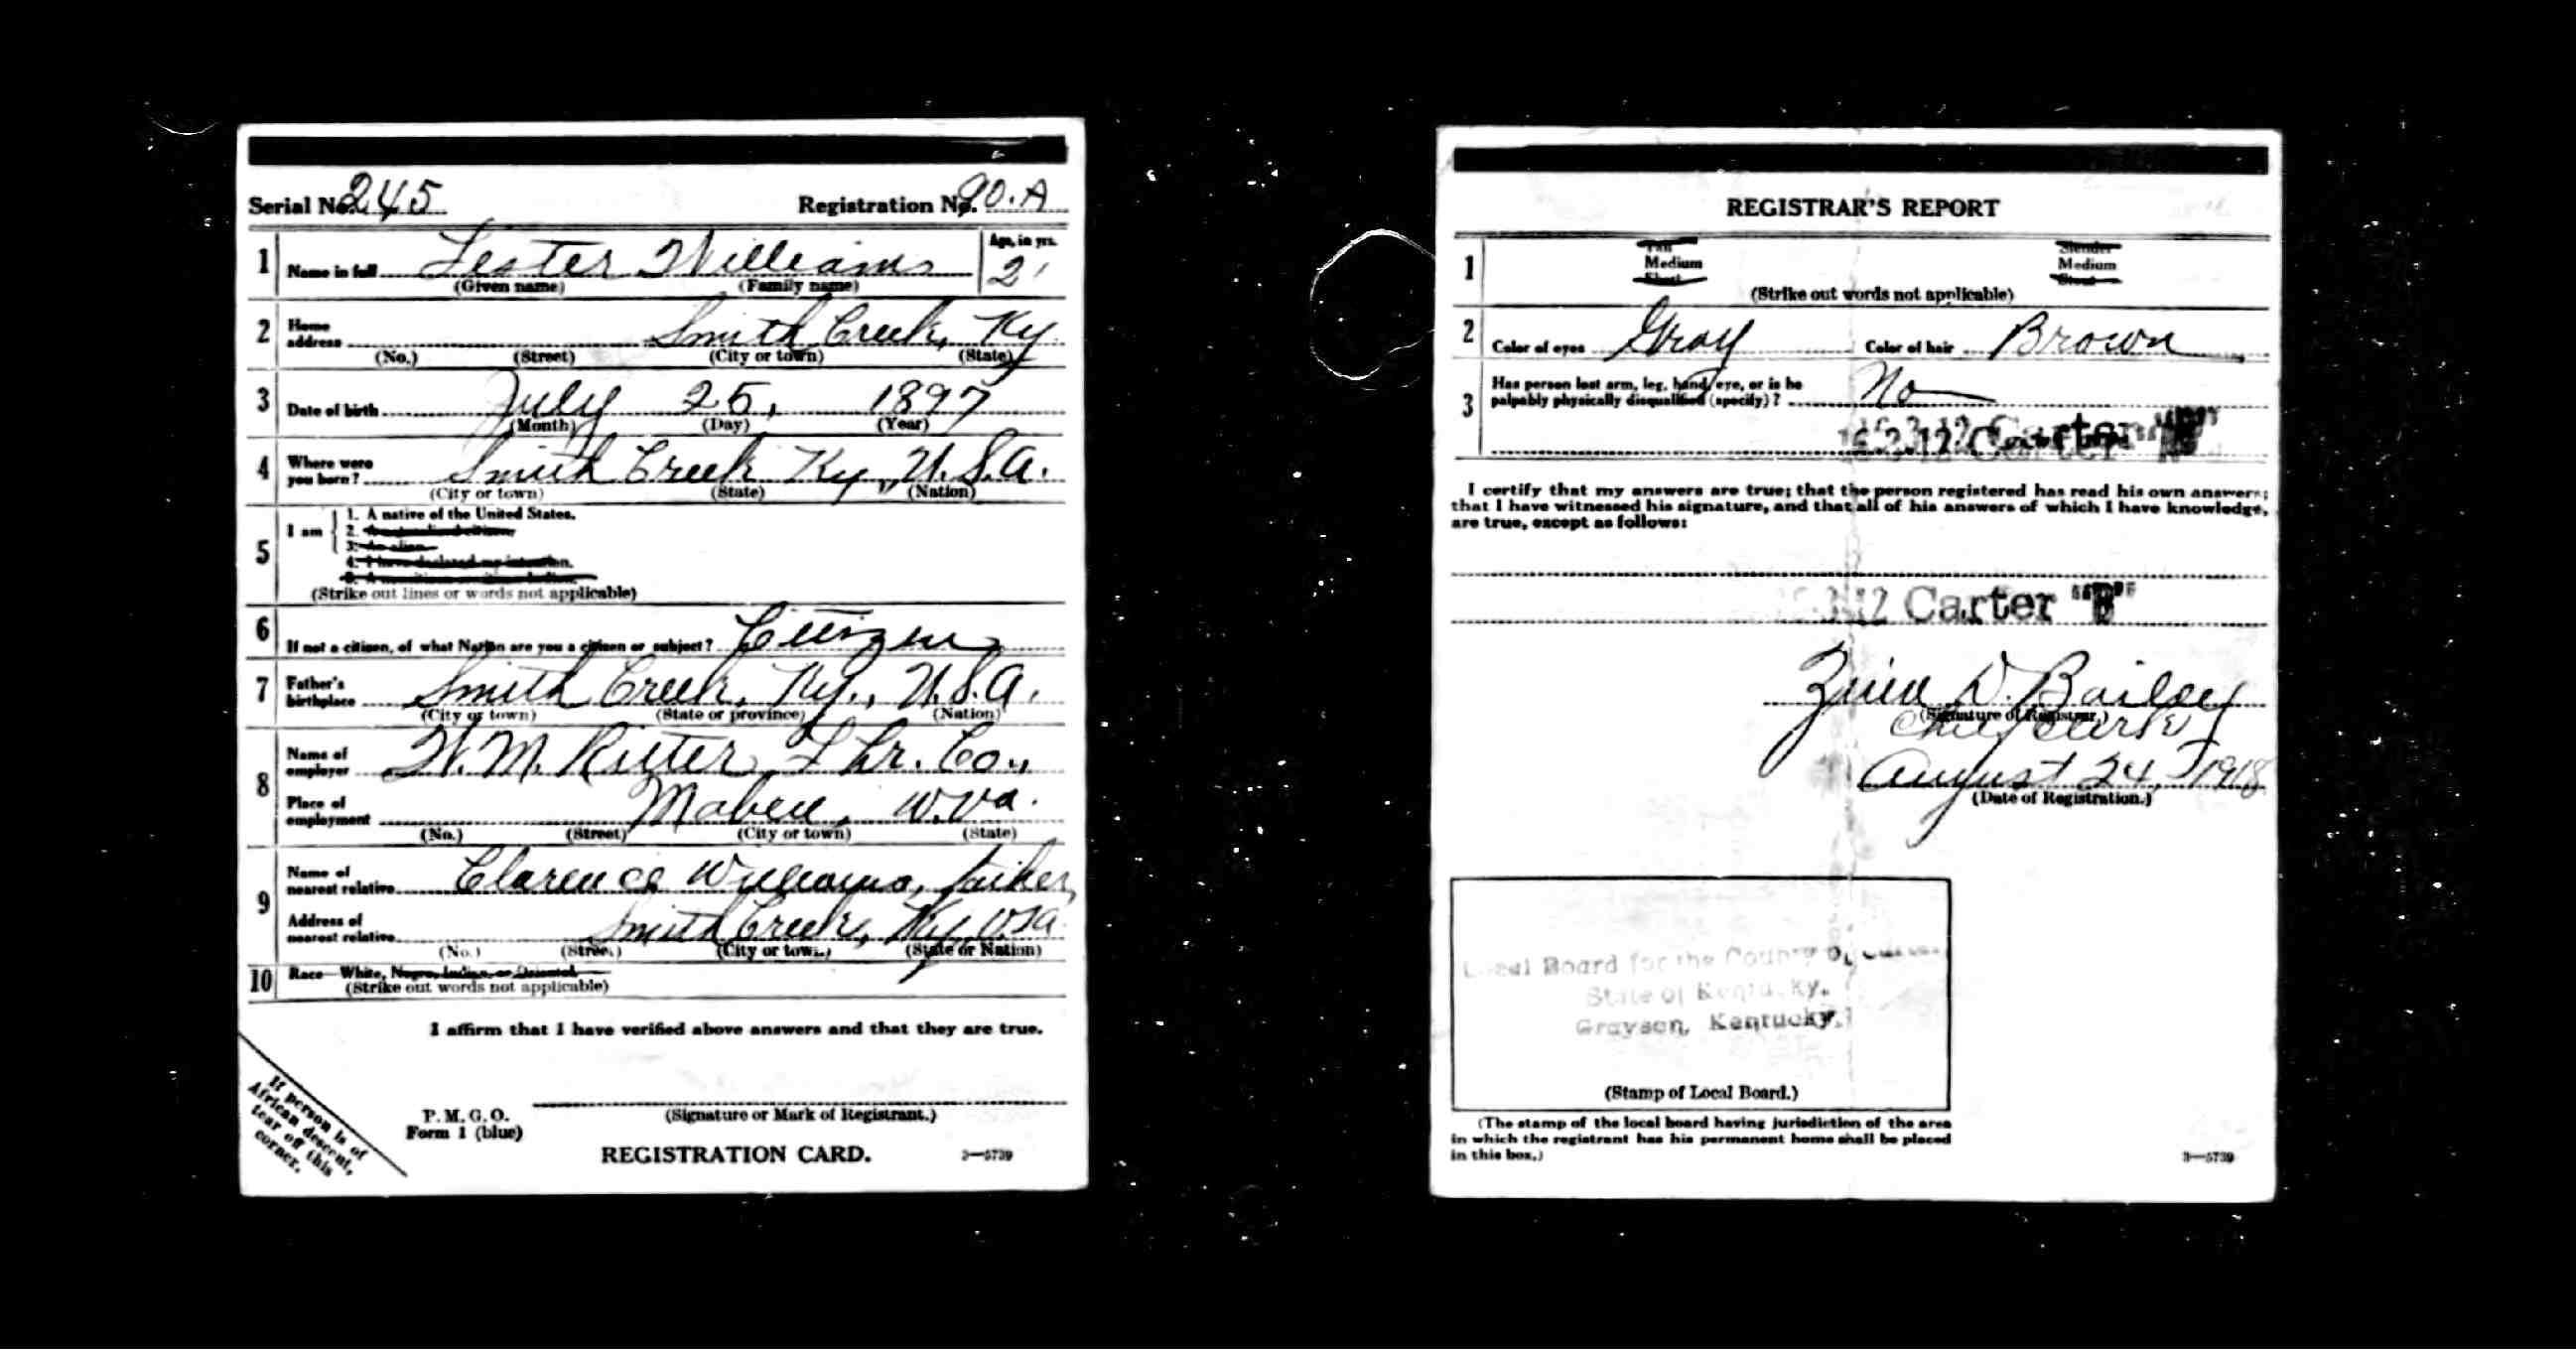 Serial No. 245 Registration No. 90.A
1 Name in full Lester Williams Age, in yrs. 21
(Given name) (Family name)
2 Home address Smith Creek, Ky.
(No.) (Street) (City or town) (State)
3 Date of birth July 25, 1897
(Month) (Day) (Year)
4 Where were you born? Smith Creek Ky., U.S.A.
(City or town) (State) (Nation)
5 I am
1. A native of the United States.
2.
3. An alien.
4. I have declared my intention.
5.
(Strike out lines or words not applicable)
6 If not a citizen, of what Nation are you a citizen or subject? Citizen
7 Father's birthplace Smith Creek, Ky., U.S.A.
(City or town) (State or province) (Nation)
8 Name of employer W. M. Ritter Lbr. Co.,
Place of employment Maben, W.Va.
(No.) (Street) (City or town) (State)
9 Name of nearest relative Clarence Williams, father,
Address of nearest relative Smith Creek, Ky. USA.
(No.) (Street) (City or town) (State or Nation)
10 Race—White, Negro, Indian, or Oriental
(Strike out words not applicable)
I affirm that I have verified above answers and that they are true.
(Signature or Mark of Registrant.)
P. M. G. O.
Form 1 (blue)
REGISTRATION CARD. 3—5739
If person is of
African descent,
tear off this
corner.
REGISTRAR'S REPORT
1 Tall Slender
Medium Medium
Short Stout
(Strike out words not applicable)
2 Color of eyes Gray Color of hair Brown
3 Has person lost arm, leg, hand, eye, or is he
palpably physically disqualified (specify)? No
16 3 12 Carter "B"
I certify that my answers are true; that the person registered has read his own answers;
that I have witnessed his signature, and that all of his answers of which I have knowledge,
are true, except as follows:
Carter "B"
D. Bailey
(Signature of Registrar)
Chief Clerk
August 24, 1918
(Date of Registration.)
Local Board for the County of
State of Kentucky.
Grayson, Kentucky.
(Stamp of Local Board.)
(The stamp of the local board having jurisdiction of the area
in which the registrant has his permanent home shall be placed
in this box.)
3—5739